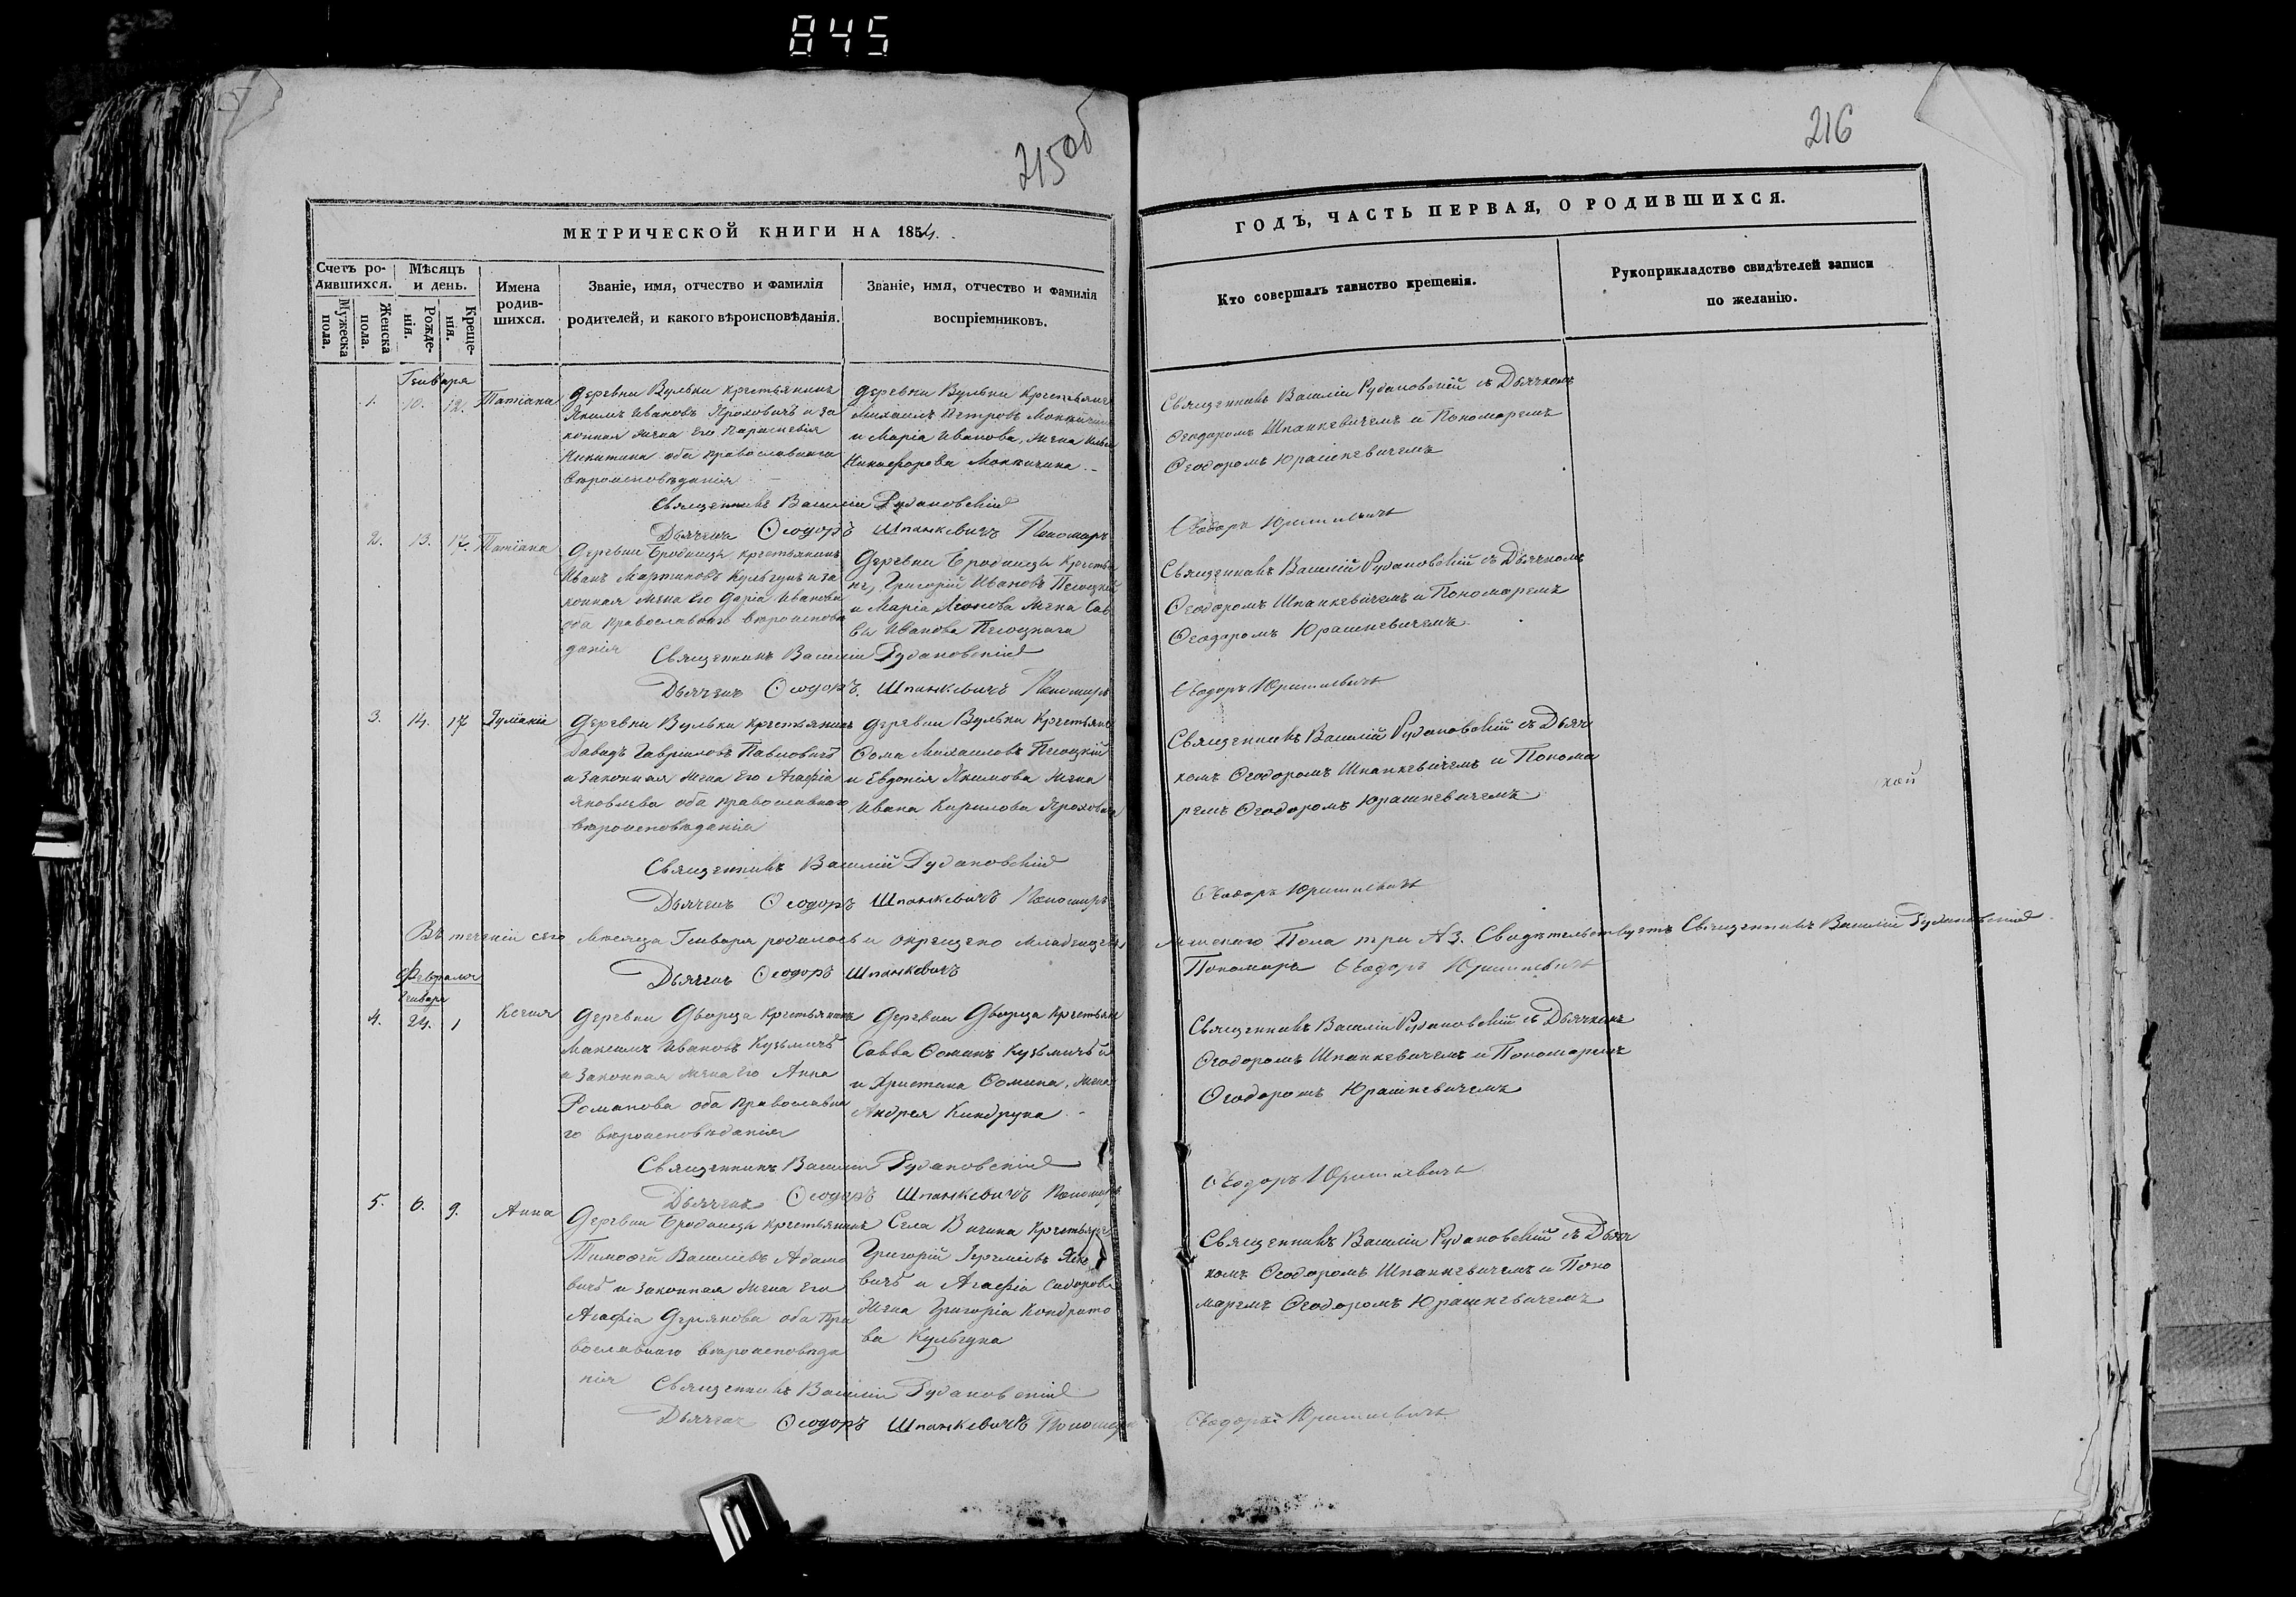 845
215об
216
МЕТРИЧЕСКОЙ КНИГИ НА 1854.
ГОДЪ, ЧАСТЬ ПЕРВАЯ, О РОДИВШИХСЯ.
Счетъ родившихся.
Мужеска пола.
Женска пола.
Мѣсяцъ и день.
Рожденія.
Крещенія.
Имена родившихся.
Званіе, имя, отчество и фамилія
родителей, и какого вѣроисповѣданія.
Званіе, имя, отчество и фамилія
воспріемниковъ.
Кто совершалъ таинство крещенія.
Рукоприкладство свидѣтелей записи
по желанію.
Генваря
1. 10. 12. Татіана
Деревни Вульки крестьянинъ
Якимъ Ивановъ Ярховичъ и за
конная жена его Параскевія
Никитина оба православнаго
вѣроисповѣданія
Деревни Вульки крестьянинъ
Михаилъ Петровъ
и Марія Иванова, жена
Никифорова
Священникъ Василій Рудановскій съ Дьячкомъ
Ѳеодоромъ Шпанкевичемъ и Пономаремъ
Ѳеодоромъ Юрашкевичемъ
Священникъ Василій Рудановскій
Дьячекъ Ѳеодоръ Шпанкевичъ Пономарь
Ѳеодоръ Юрашкевичъ
2. 13. 17. Татіана
Деревни Бродница крестьянинъ
Иванъ Мартиновъ Кульгунъ и за
конная жена его Дарія Иванова
оба православнаго вѣроисповѣ
данія
Деревни Бродница крестья
нъ, Григорій Ивановъ Песоцкій
и Марія Леонова жена Сав
вы Иванова Песоцкаго
Священникъ Василій Рудановскій съ Дьячкомъ
Ѳеодоромъ Шпанкевичемъ и Пономаремъ
Ѳеодоромъ Юрашкевичемъ
Священникъ Василій Рудановскій
Дьячекъ Ѳеодоръ Шпанкевичъ Пономарь
Ѳеодоръ Юрашкевичъ
3. 14. 17 Іуліанія
Деревни Вульки крестьянинъ
Давидъ Гавриловъ Павловичъ
и законная жена его Агафія
Яковлева оба православнаго
вѣроисповѣданія
Деревни Вульки крестьянинъ
Ѳома Михаиловъ Песоцкій
и Евдокія Якимова жена
Ивана Кирилова Ярховича
Священникъ Василій Рудановскій съ Дьяч
комъ Ѳеодоромъ Шпанкевичемъ и Понома
ремъ Ѳеодоромъ Юрашкевичемъ
Священникъ Василій Рудановскій
Дьячекъ Ѳеодоръ Шпанкевичъ Пономарь
Ѳеодоръ Юрашкевичъ
Въ теченіи сего мѣсяца Генваря родилось и окрещено младенцевъ женскаго пола три №3. Свидѣтельствуетъ Священникъ Василій Рудановскій
Дьячекъ Ѳеодоръ Шпанкевичъ
Пономарь Ѳеодоръ Юрашкевичъ
Февраля
Генваря
4. 24. 1 Ксенія
Деревни Дворца крестьянинъ
Максимъ Ивановъ Кузьмичъ
и законная жена его Анна
Романова оба православна
го вѣроисповѣданія
Деревни Дворца крестьянинъ
Савва Ѳоминъ Кузьмичъ и
и Христина Ѳомина, жена
Андрея Киндрука
Священникъ Василій Рудановскій съ Дьячкомъ
Ѳеодоромъ Шпанкевичемъ и Пономаремъ
Ѳеодоромъ Юрашкевичемъ
Священникъ Василій Рудановскій
Дьячекъ Ѳеодоръ Шпанкевичъ Пономарь
Ѳеодоръ Юрашкевичъ
5. 6. 9. Анна
Деревни Бродница крестьянинъ
Тимоѳей Василіевъ Адамо
вичъ и законная жена его
Агафія Демянова оба пра
вославнаго вѣроисповѣда
нія
Села Вичина крестьянинъ
Григорій Іереміевъ
вичъ и Агафія Сидорова
жена Григорія Кондрато
ва Кульгуна
Священникъ Василій Рудановскій съ Дьяч
комъ Ѳеодоромъ Шпанкевичемъ и Поно
маремъ Ѳеодоромъ Юрашкевичемъ
Священникъ Василій Рудановскій
Дьячекъ Ѳеодоръ Шпанкевичъ Пономарь
Ѳеодоръ Юрашкевичъ